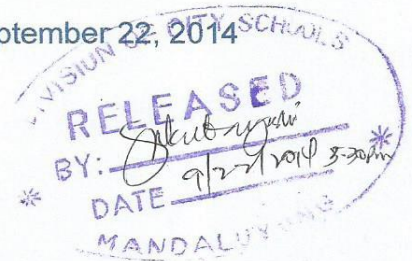 ptember 22, 2014
DIVISION OF CITY SCHOOLS
RELEASED
BY:
DATE 9/22/2014 3:30pm
MANDALUYONG